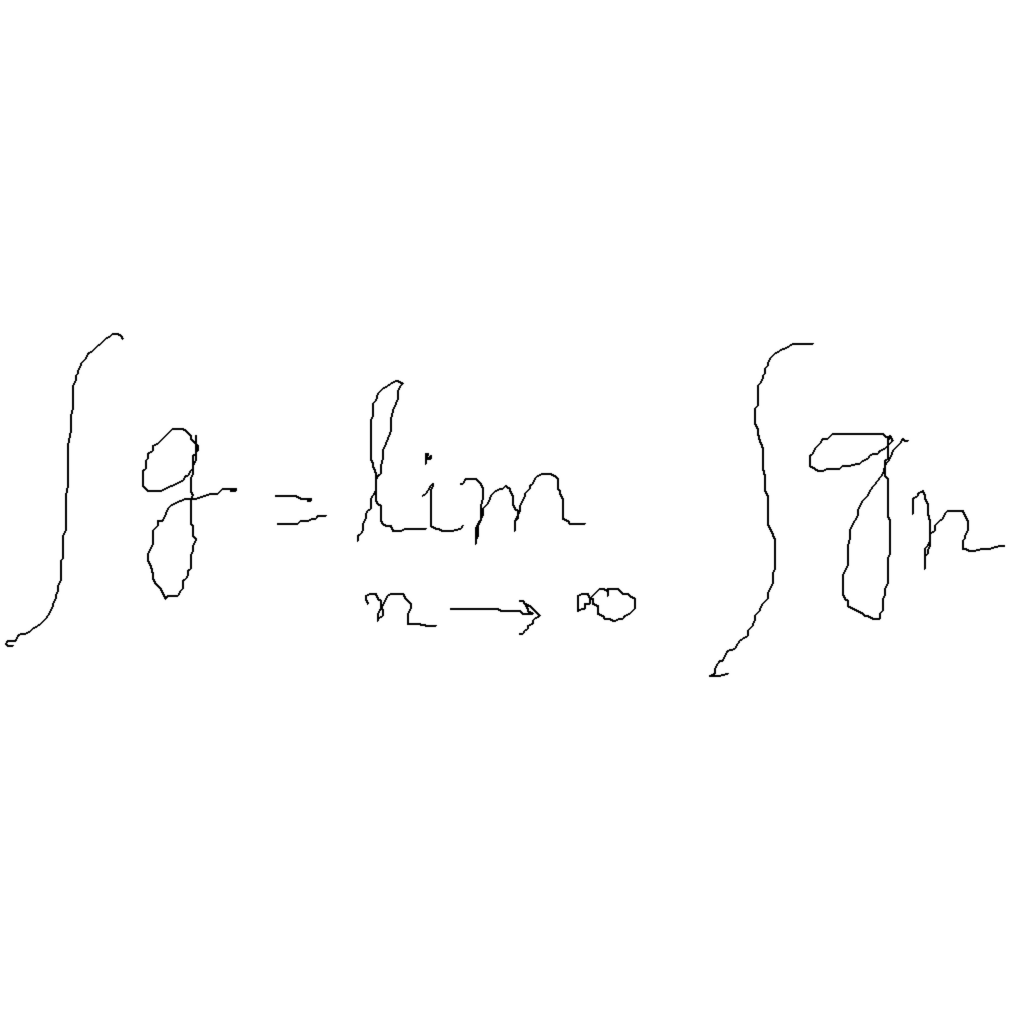 \int g = \lim_{n \to \infty} \int g_n